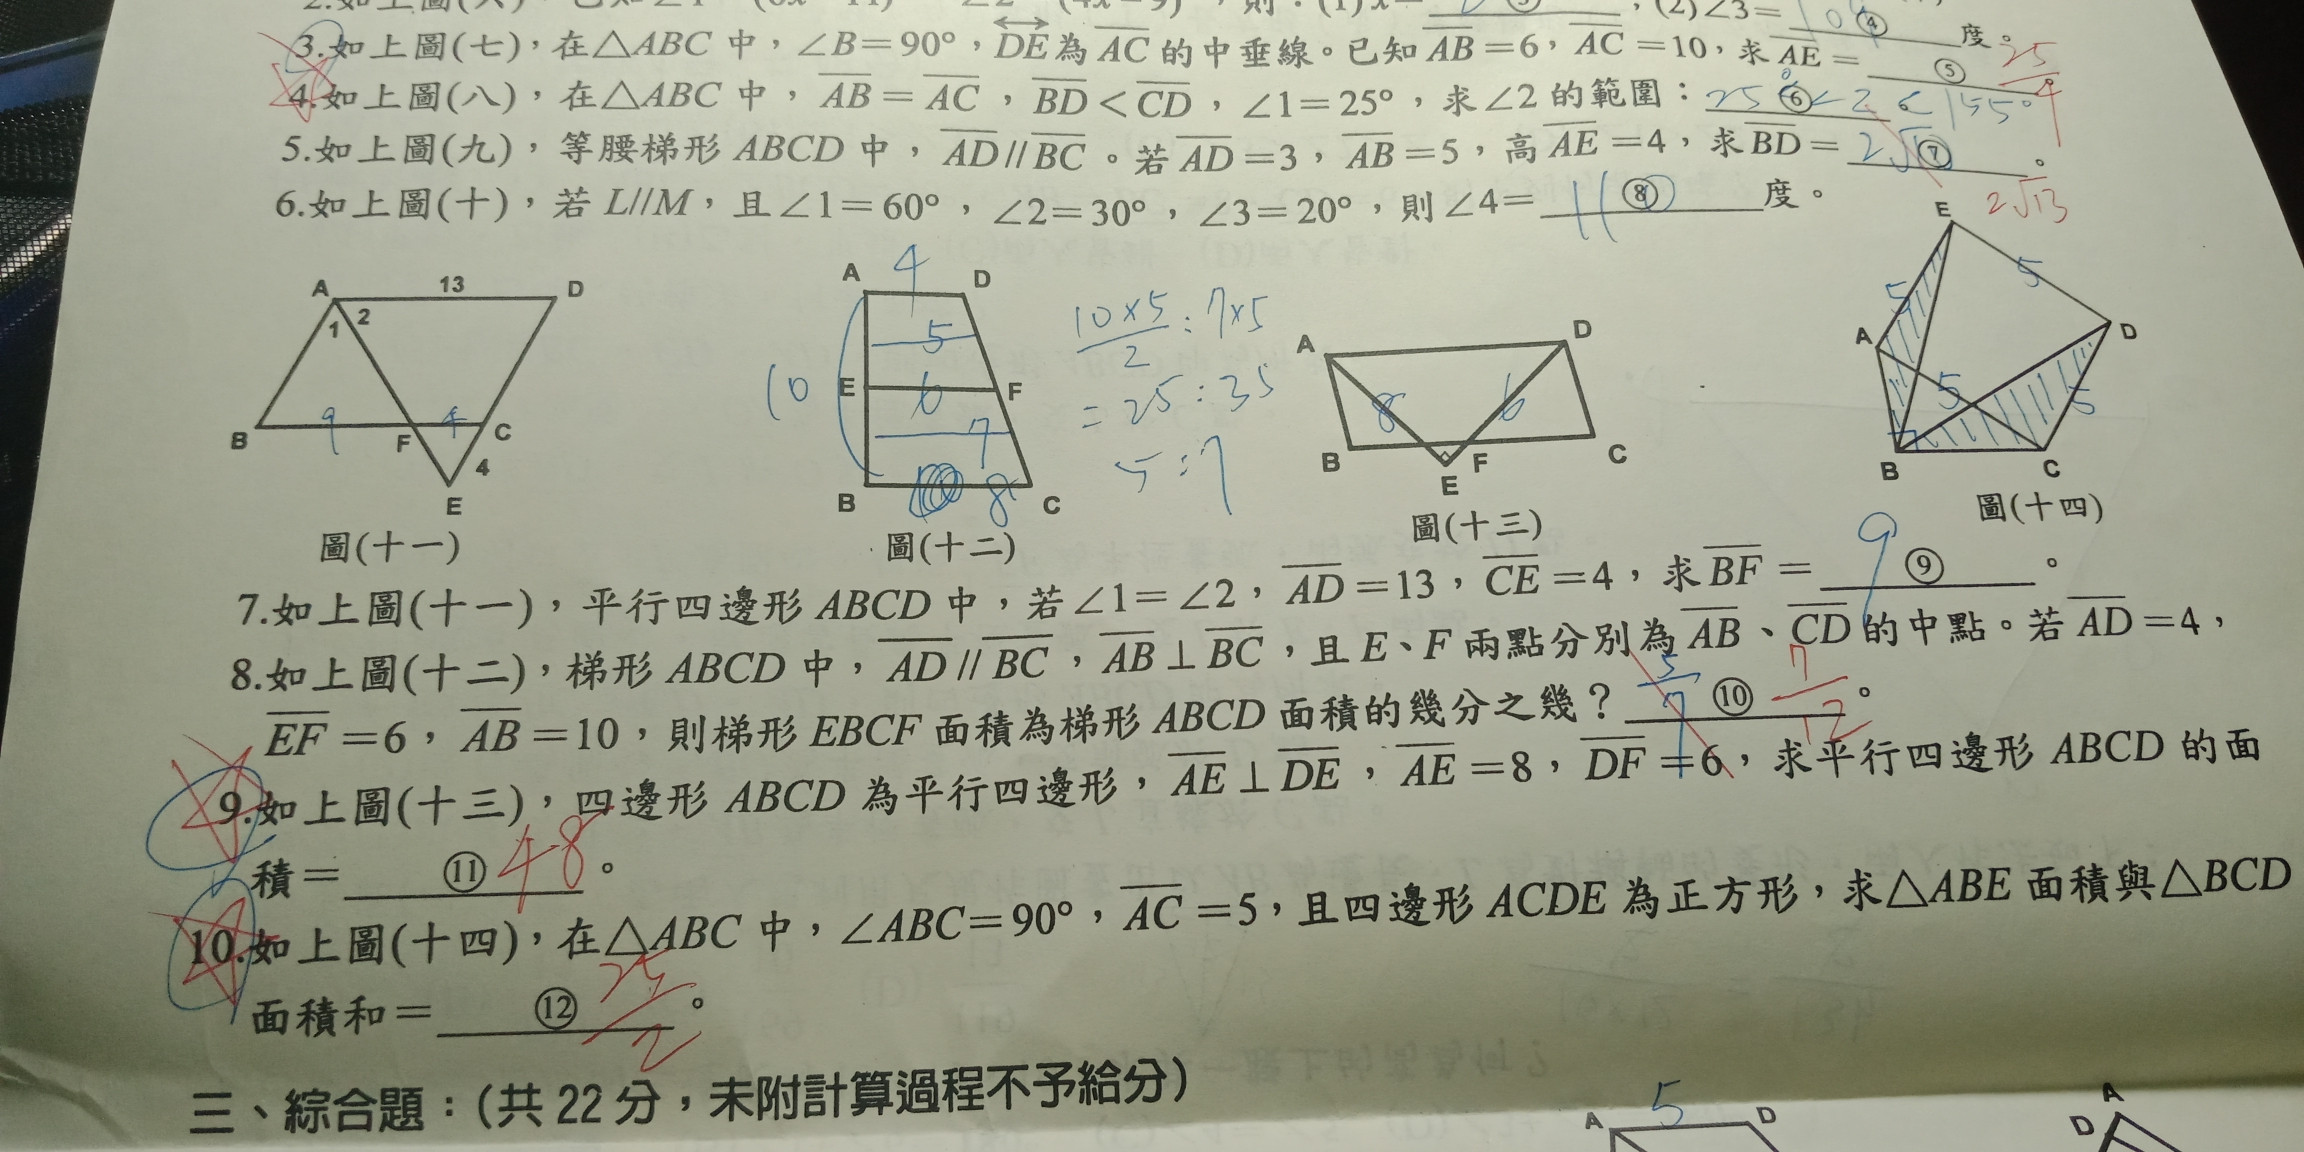 3.如上圖(七)，在△ABC 中，∠B＝90°，DE為 AC 的中垂線。已知 AB＝6，AC＝10，求 AE＝⑤ 25/4
4.如上圖(八)，在△ABC 中，AB＝AC，BD＜CD，∠1＝25°，求∠2 的範圍：⑥ 25°<2<155°
5.如上圖(九)，等腰梯形 ABCD 中，AD//BC。若 AD＝3，AB＝5，高 AE＝4，求 BD＝⑦。
2√13
6.如上圖(十)，若 L//M，且∠1＝60°，∠2＝30°，∠3＝20°，則∠4＝110⑧度。
A 13 D
1 2
B 9 F 4 C
4
E
圖(十一)
A 4 D
5
10 E 6 F
7
B 8 C
圖(十二)
10×5/2 : 7×5
= 25 : 35
5 : 7
A D
8 6
B F C
E
圖(十三)
E
5 5
A D
5 5
B C
圖(十四)
7.如上圖(十一)，平行四邊形 ABCD 中，若∠1＝∠2，AD＝13，CE＝4，求 BF＝9⑨。
8.如上圖(十二)，梯形 ABCD 中，AD//BC，AB⊥BC，且 E、F 兩點分別為 AB、CD 的中點。若 AD＝4，
EF＝6，AB＝10，則梯形 EBCF 面積為梯形 ABCD 面積的幾分之幾？5/7 ⑩ 7/12。
9.如上圖(十三)，四邊形 ABCD 為平行四邊形，AE⊥DE，AE＝8，DF＝6，求平行四邊形 ABCD 的面
積＝⑪48。
10.如上圖(十四)，在△ABC 中，∠ABC＝90°，AC＝5，且四邊形 ACDE 為正方形，求△ABE 面積與△BCD
面積和＝⑫ 25/2。
三、綜合題：(共 22 分，未附計算過程不予給分)
A 5 D
A
D